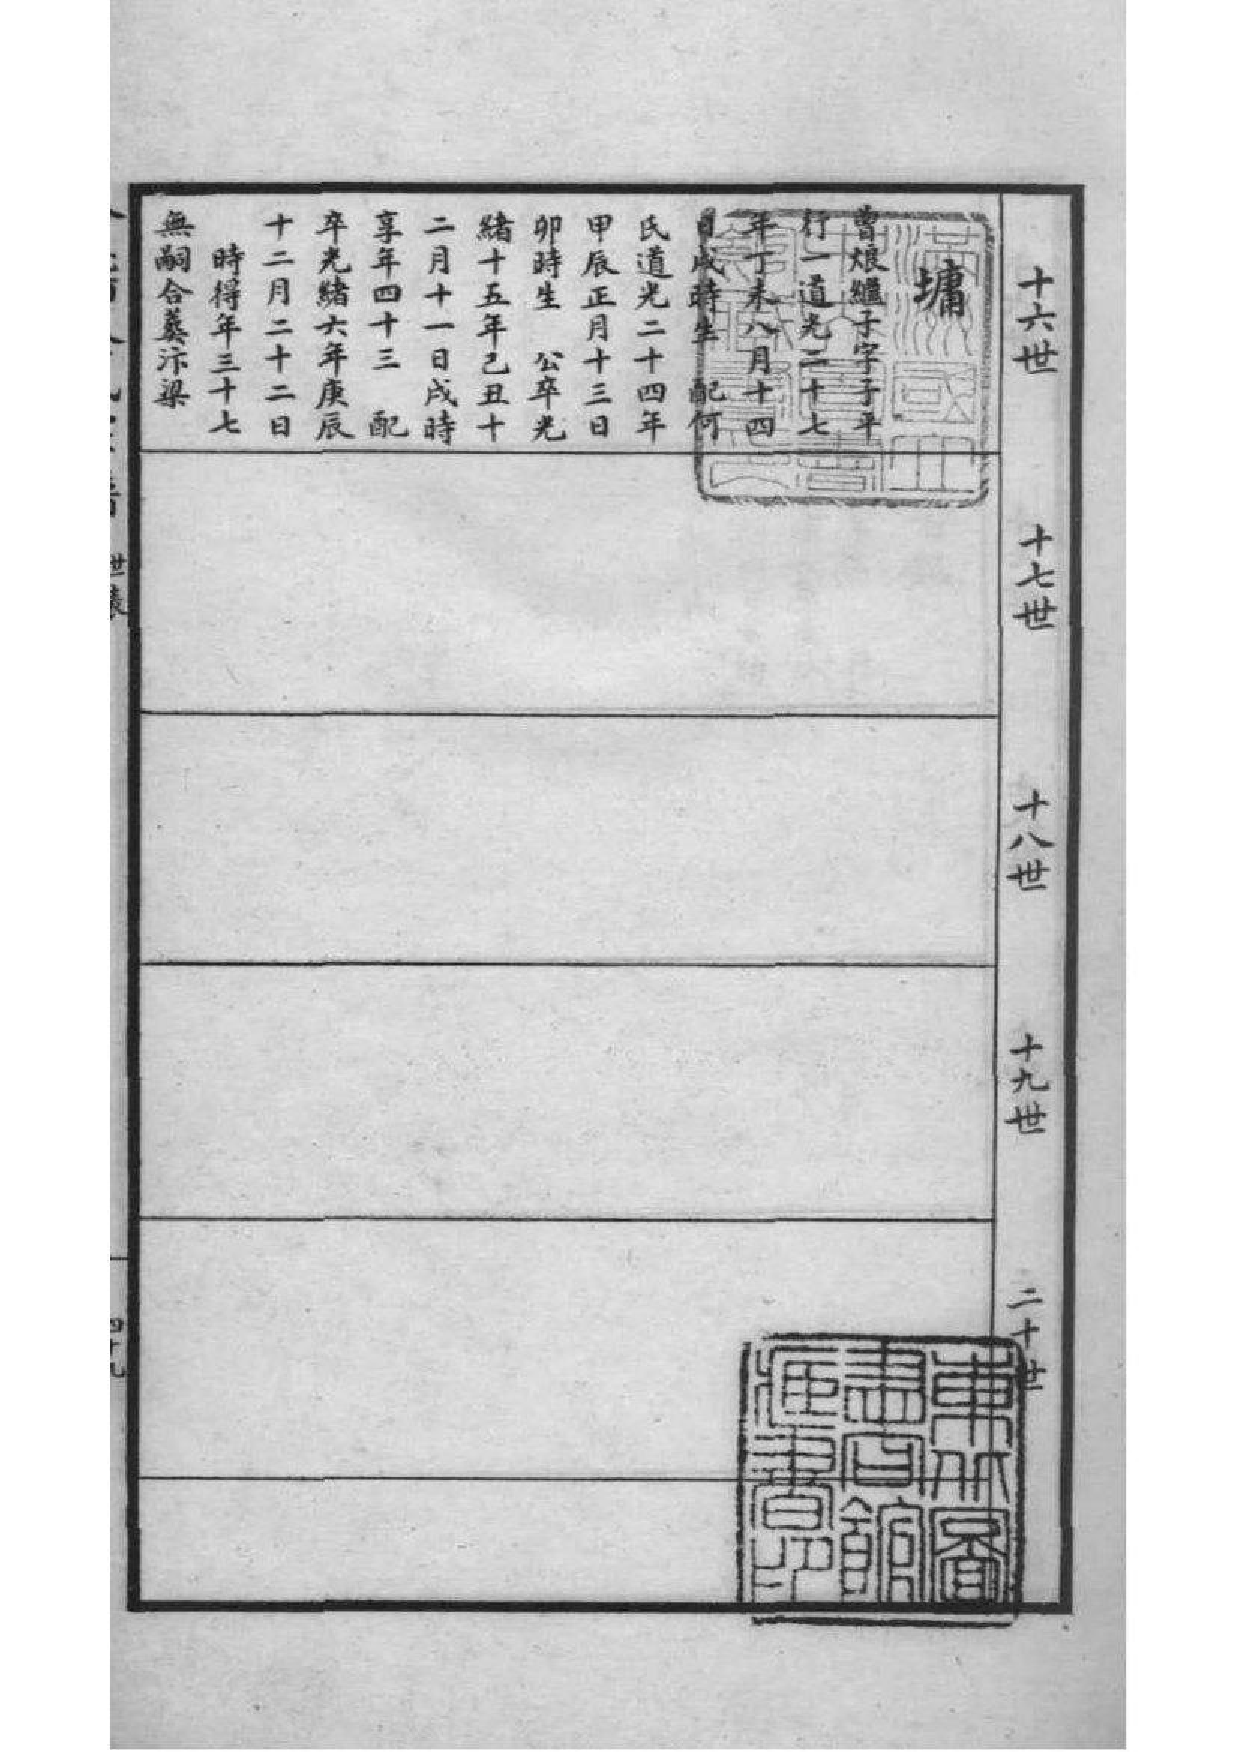 十六世
十七世
十八世
十九世
二十世
墉
曾烺繼子字子平
行一道光二十七
年丁未八月十四
日戌時生 配何
氏道光二十四年
甲辰正月十三日
卯時生 公卒光
緒十五年己丑十
二月十一日戌時
享年四十三 配
卒光緒六年庚辰
十二月二十二日
時得年三十七
無嗣合葬汴梁
世表
四十九
東北圖
書館
藏書印